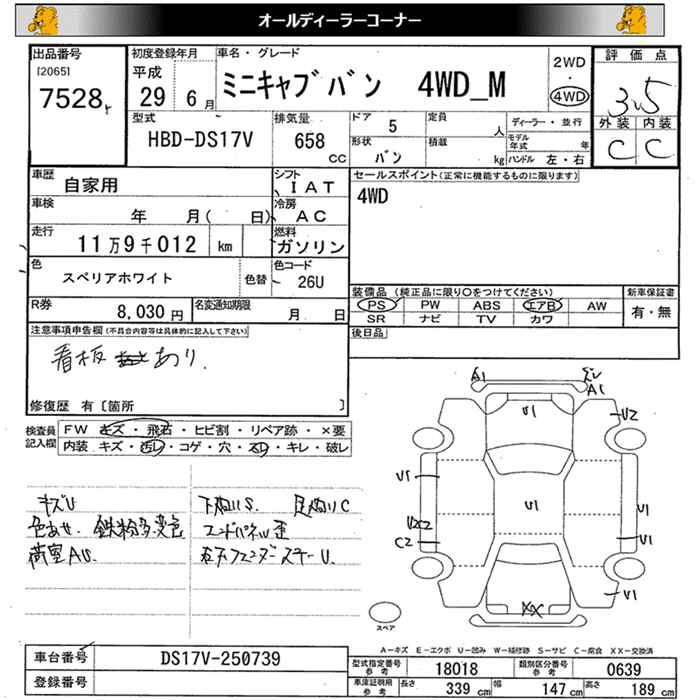 オールディーラーコーナー
出品番号
[2065]
7528
初度登録年月
平成
29 6月
車名・グレード
ミニキャブバン 4WD_M
2WD
・
4WD
評価点
3.5
外装 内装
C C
型式
HBD-DS17V
排気量
658
cc
ドア 5
形状 バン
定員 人
積載 kg
ディーラー・並行
モデル年式 年
ハンドル 左・右
車歴
自家用
シフト
IAT
車検
年 月( 日)
冷房
AC
走行
11万9千012 km
燃料
ガソリン
色
スペリアホワイト
色替
色コード
26U
R券
8,030円
名変通知期限
月 日
セールスポイント(正常に機能するものに限ります)
4WD
装備品(純正品に限り○をつけてください)
新車保証書
PS PW ABS エアB AW
SR ナビ TV カワ
有・無
後日品
注意事項申告欄(不具合内容等は具体的に記入して下さい)
看板 あり.
修復歴 有〔箇所 〕
検査員記入欄
FW キズ・飛石・ヒビ割・リペア跡・×要
内装 キズ・汚レ・コゲ・穴・スレ・キレ・破レ
キズU
色あせ. 鉄粉多変色
荷室AU.
下廻りS. 足廻りC
エンドパネル歪
左右フェンダーステーU.
A1
A1
U1
U2
U1
U2C2
C2
U1
U1
U1
XX
U1
スペア
A-キズ E-エクボ U-凹み W-補修跡 S-サビ C-腐食 XX-交換済
車台番号
DS17V-250739
登録番号
型式指定番号
参考
18018
類別区分番号
参考
0639
車庫証明用
参考
長さ 339 cm
幅 147 cm
高さ 189 cm